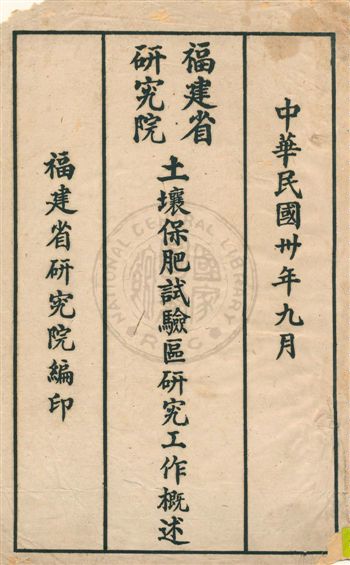 中華民國卅年九月
福建省研究院
土壤保肥試驗區研究工作概述
福建省研究院編印
NATIONAL CENTRAL LIBRARY